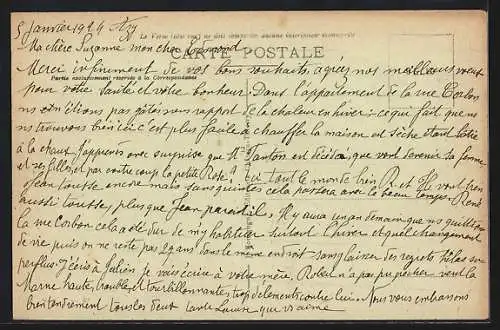 5 Janvier 1924
Ma chère Suzanne mon cher Edmond
CARTE POSTALE
Partie exclusivement réservée à la Correspondance
Merci infiniment de vos bons souhaits, agréez nos meilleurs vœux
pour votre santé et votre bonheur. Dans l'appartement de la rue Corbon
ns n'étions pas gâtés sous rapport de la chaleur en hiver: ce qui fait que ns
ns trouvons bien ici c'est plus facile à chauffer la maison est sèche étant bâtie
à la chaux. J'apprends avec surprise que Mr Tanton est décédé, que vont devenir sa femme
et ses filles, et par contre coup la petite Rose? Ici tout le monde va bien P. et
Jean tousse encore mais sans quintes cela passera avec le beau temps. René
aussi tousse, plus que Jean paraît-il. Il y aura un an demain que ns quittions
la rue Corbon cela a été dur de m'y habituer surtout l'hiver et quel changement
de vie puis on ne reste pas 29 ans dans le même endroit sans laisser des regrets hélas su-
perflus. J'écris à Julien je vais écrire à votre mère. Robert n'a pas pu pêcher vent la
Marne haute, trouble et tourbillonnante, trop d'éléments contre lui. Nous vous embrassons
bien tendrement tous les deux tante Louise qui vs aime